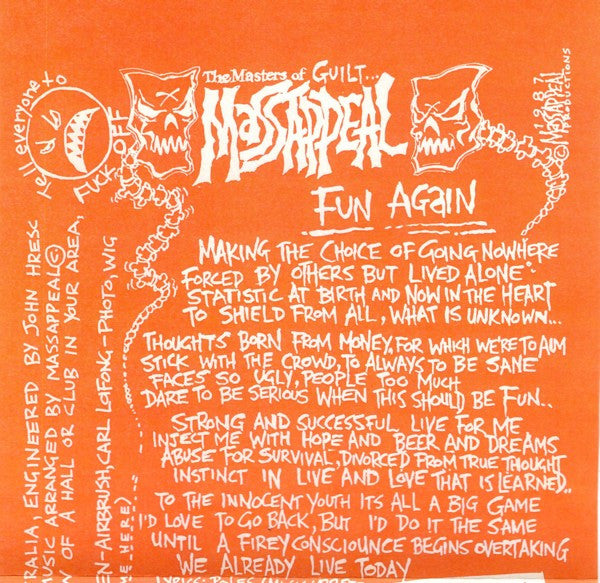 The Masters of GUILT...
MASSAPPEAL
FUN AGAIN
MAKING THE CHOICE OF GOING NOWHERE
FORCED BY OTHERS BUT LIVED ALONE
STATISTIC AT BIRTH AND NOW IN THE HEART
TO SHIELD FROM ALL, WHAT IS UNKNOWN...
THOUGHTS BORN FROM MONEY, FOR WHICH WE'RE TO AIM
STICK WITH THE CROWD, TO ALWAYS TO BE SANE
FACES SO UGLY, PEOPLE TOO MUCH
DARE TO BE SERIOUS WHEN THIS SHOULD BE FUN..
STRONG AND SUCCESSFUL LIVE FOR ME
INJECT ME WITH HOPE AND BEER AND DREAMS
ABUSE FOR SURVIVAL, DIVORCED FROM TRUE THOUGHT
INSTINCT IN LIVE AND LOVE THAT IS LEARNED..
TO THE INNOCENT YOUTH ITS ALL A BIG GAME
I'D LOVE TO GO BACK, BUT I'D DO IT THE SAME
UNTIL A FIREY CONSCIOUNCE BEGINS OVERTAKING
WE ALREADY LIVE TODAY
tell everyone to
FUCK OFF
©MASSAPPEAL
PRODUCTIONS
RALIA, ENGINEERED BY JOHN HRESC
MUSIC ARRANGED BY MASSAPPEAL©
W OF A HALL OR CLUB IN YOUR AREA,
EN-AIRBRUSH, CARL LAFONG-PHOTO, WIG
ME HERE)